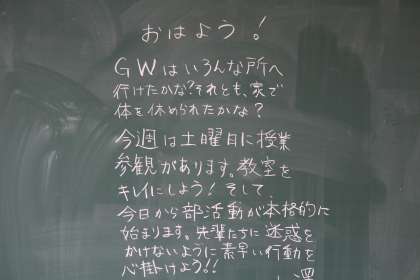 おはよう！
GWはいろんな所へ
行けたかな？それとも、家で
体を休められたかな？
今週は土曜日に授業
参観があります。教室を
キレイにしよう！そして、
今日から部活動が本格的に
始まります。先輩たちに迷惑を
かけないように素早い行動を
心掛けよう！！